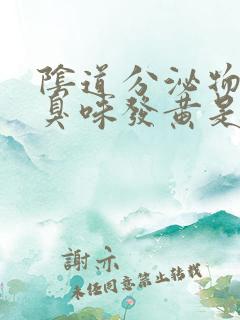 陰道分泌物
臭味發黃是
謝亦
未經同意禁止轉載